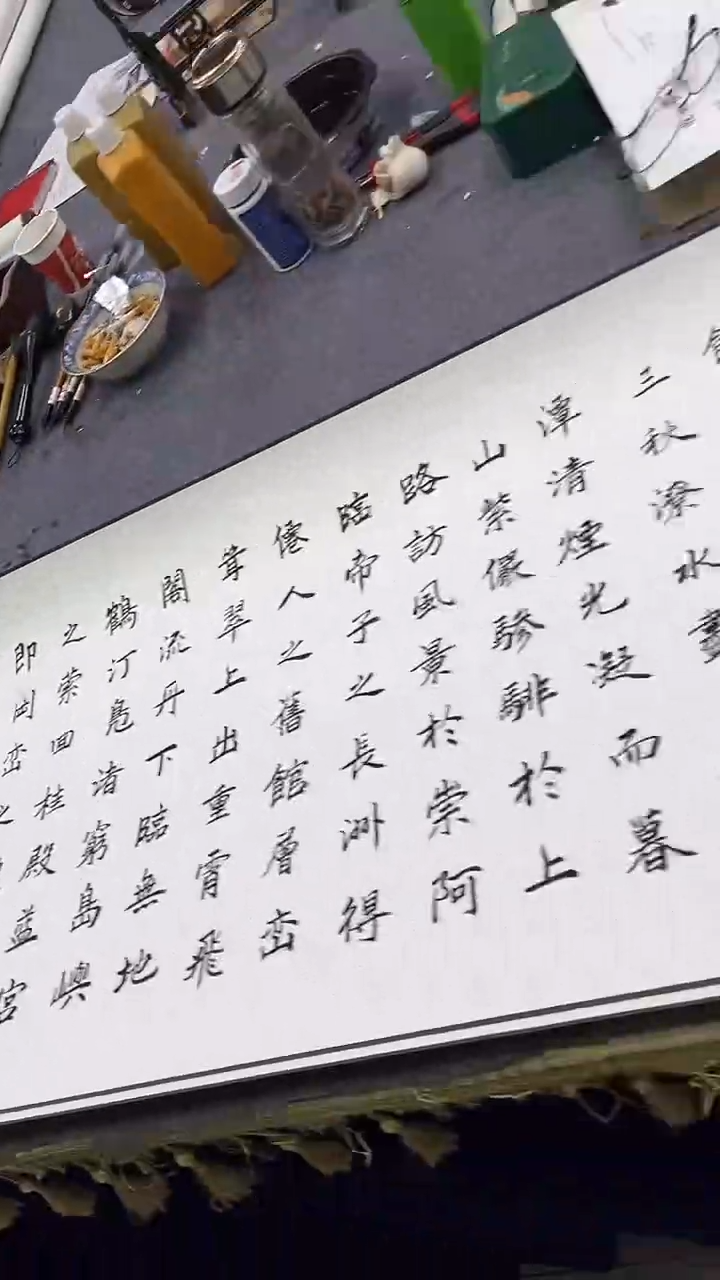 三秋潦水盡
潭清煙光凝而暮
山紫儼驂騑於上
路訪風景於崇阿
臨帝子之長洲得
僊人之舊館層峦
聳翠上出重霄飛
閣流丹下臨無地
鶴汀凫渚窮島嶼
之萦回桂殿蓝宮
即岡峦之